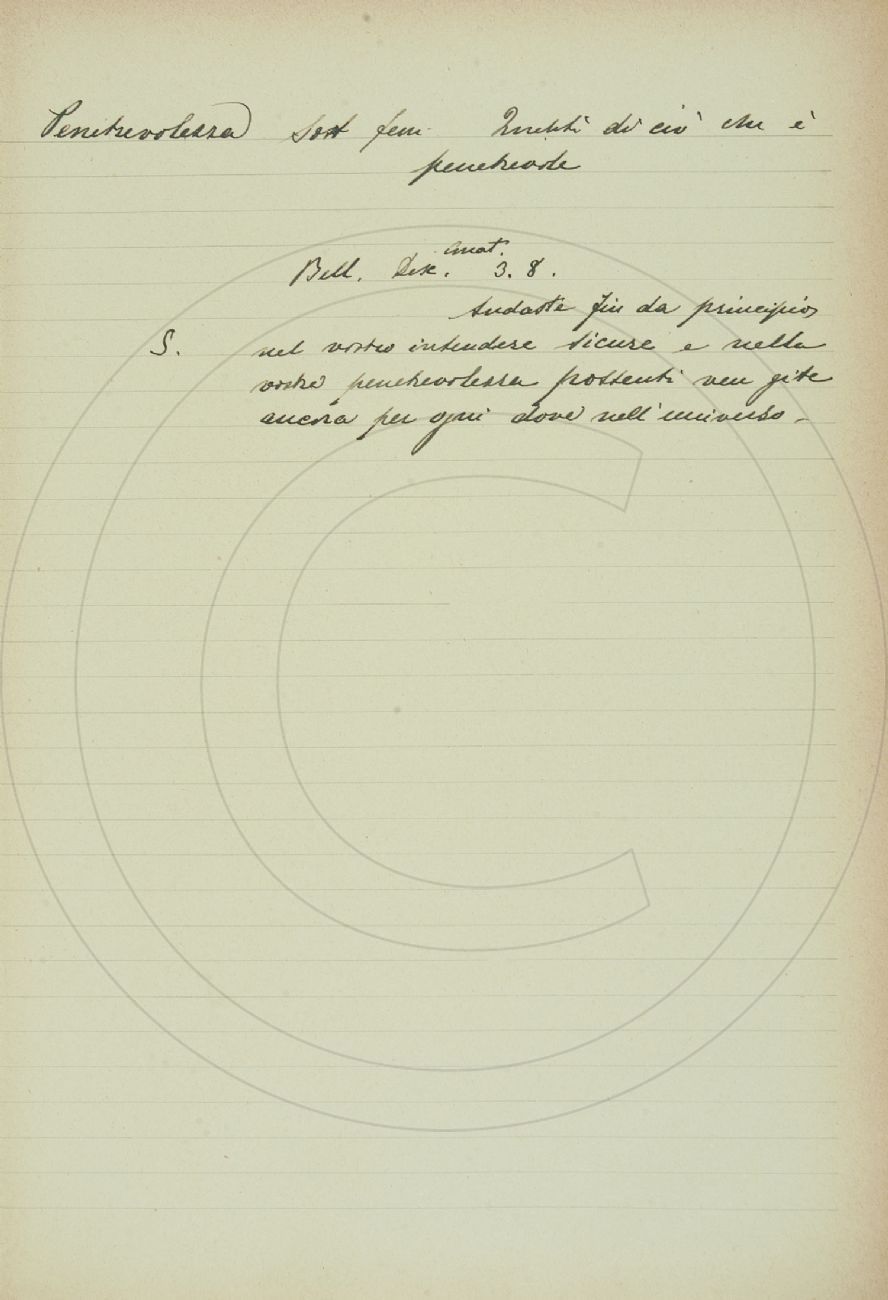 Penetrevolezza Sost fem. Qualità di ciò che è
penetrevole
Bell. Disc. anat. 3. 8.
Andaste fin da principio
S. nel vostro intendere sicure e nella
vostra penetrevolezza possenti ven gite
ancora per ogni dove nell'universo -